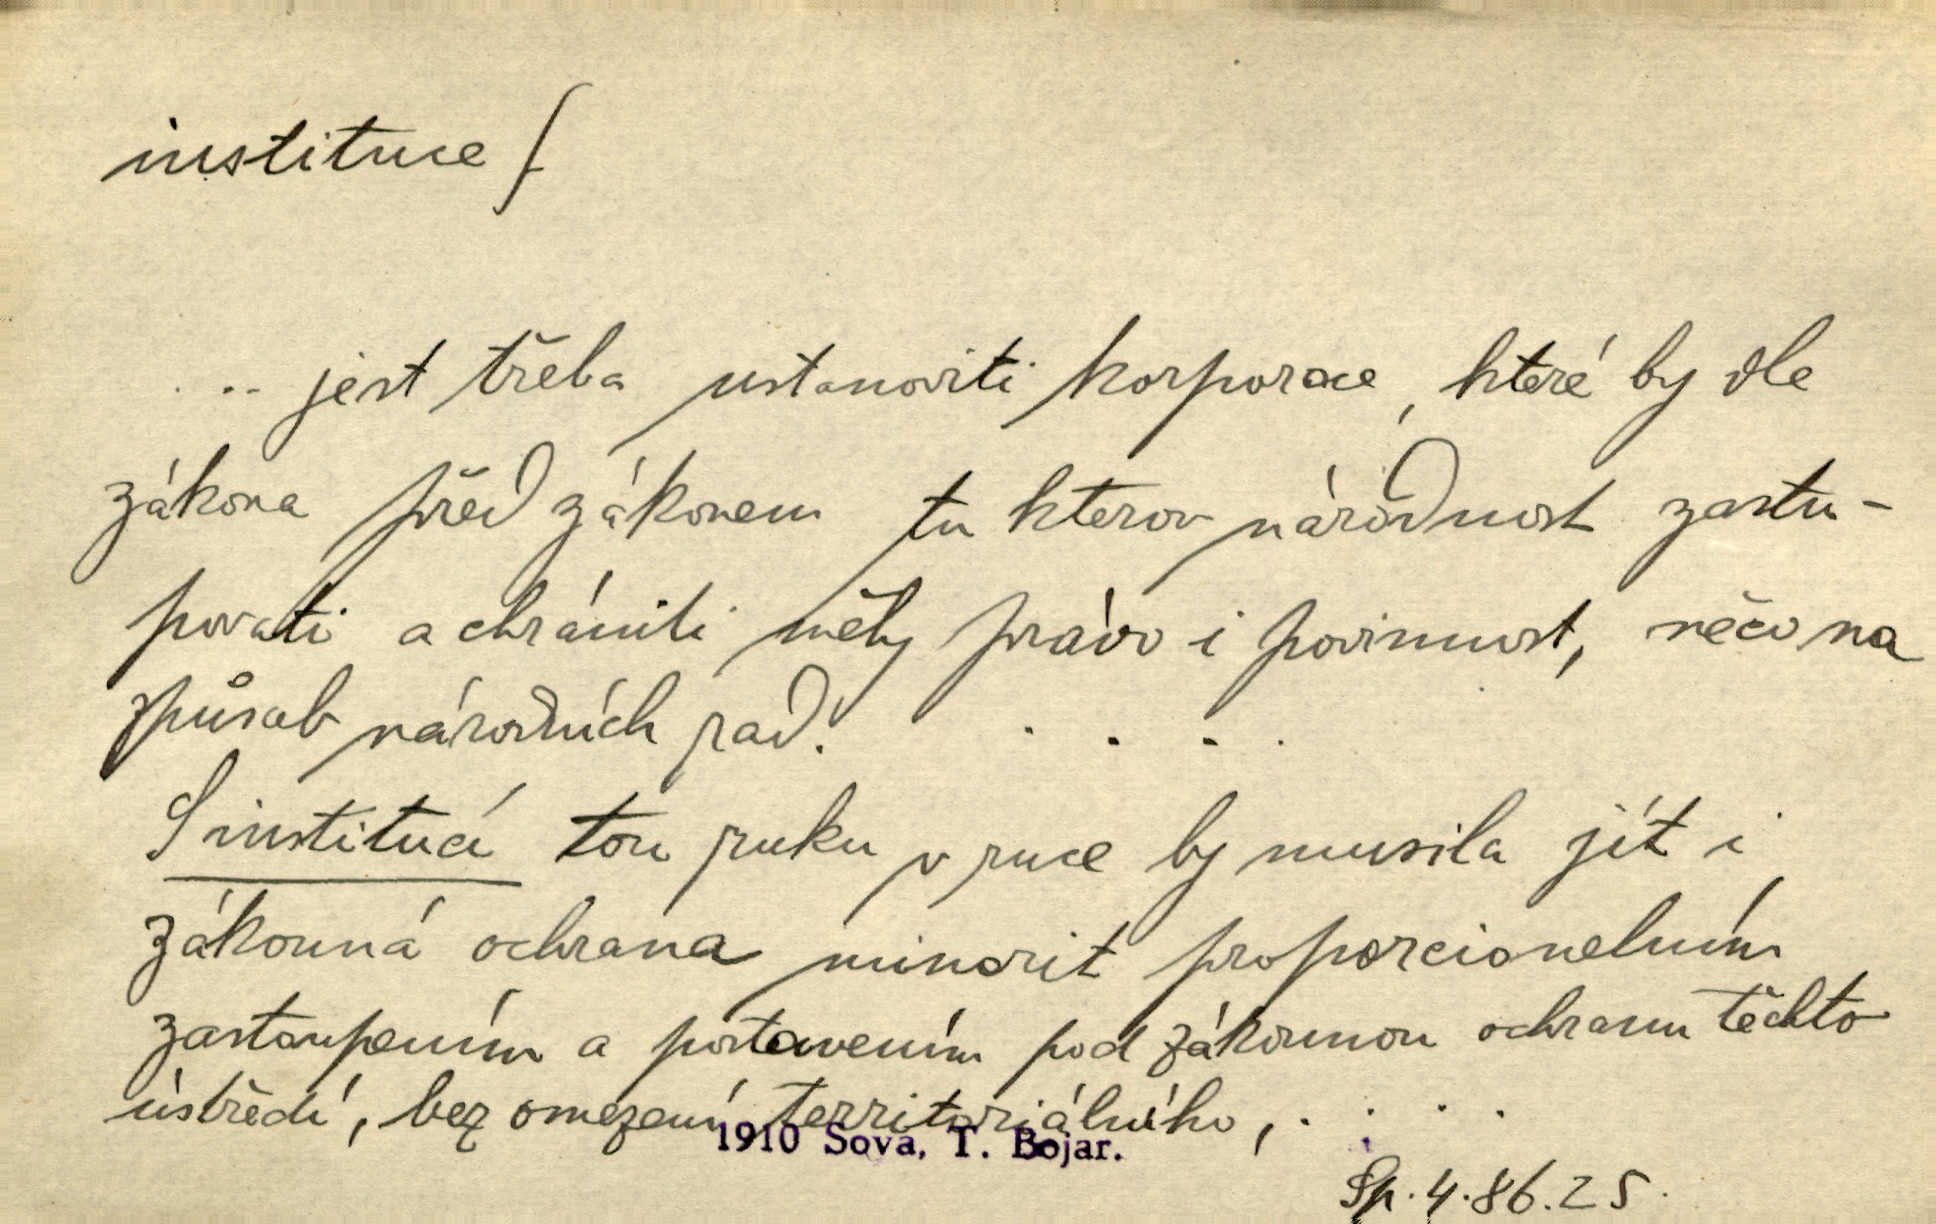 instituce f
... jest třeba ustanoviti korporace, které by dle
zákona před zákonem tu kterou národnost zastu-
povati a chrániti měly právo i povinnost, něco na
způsob národních rad. . . . .
S institucí tou ruku v ruce by musila jít i
zákonná ochrana minorit proporcionelním
zastoupením a postavením pod zákonnou ochranu těchto
ústředí, bez omezení territoriálního, . . . .
1910 Sova, T. Bojar.
Sp. 4. 86. 25.